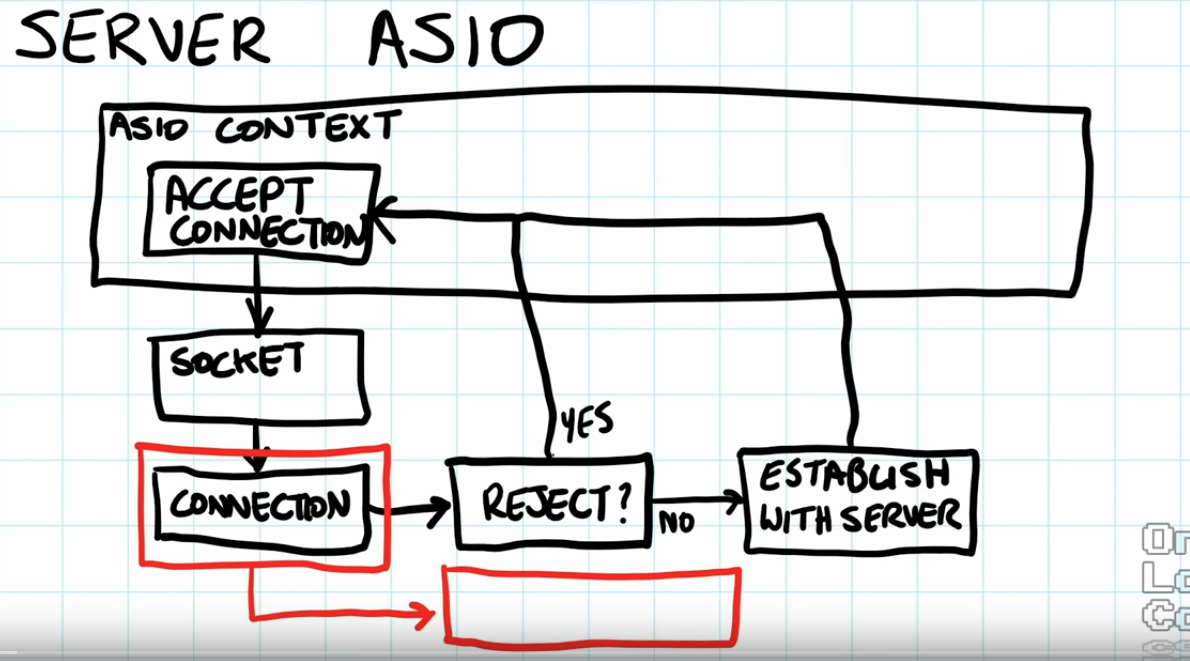 SERVER ASIO
ASIO CONTEXT
ACCEPT
CONNECTION
SOCKET
YES
CONNECTION
REJECT?
NO
ESTABLISH
WITH SERVER